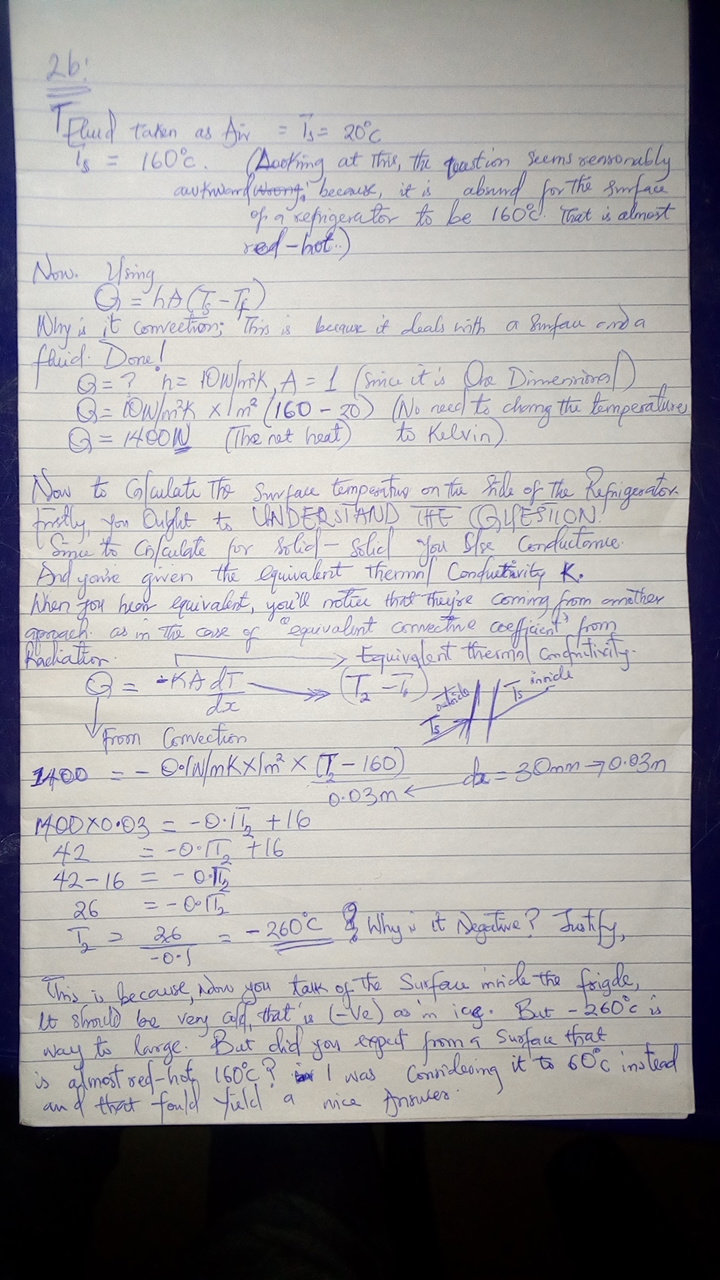 2b:
T Fluid taken as Air = Ts = 20°C
Ts = 160°C. (Looking at this, the question seems reasonably
awkward (wrong), because, it is absurd for the surface
of a refrigerator to be 160°C. That is almost
red-hot.)
Now. Using
Q = hA(Ts - Tf)
Why is it convection; This is because it deals with a surface and a
fluid. Done!
Q = ? h = 10W/m²K, A = 1 (Since it is One Dimensional)
Q = 10W/m²K × 1m² (160 - 20) (No need to chang the temperature
Q = 1400W (The net heat) to Kelvin).
Now to Calculate the Surface temperature on the Side of the Refrigerator.
firstly, you Ought to UNDERSTAND THE QUESTION.
Since to Calculate for Solid-Solid you Use Conductance.
And you're given the equivalent thermal Conductivity K.
When you hear equivalent, you'll notice that they're coming from another
aproach. as in the case of "equivalent convective coefficient" from
Radiation.
Equivalent thermal Conductivity.
Q = -KA dT/dx (T2 - Ts) outside Ts Ts inside
From Convection
1400 = - 0.1W/mK × 1m² × (T2 - 160)
0.03m dx = 30mm → 0.03m
1400×0.03 = -0.1T2 + 16
42 = -0.1T2 + 16
42-16 = -0.1T2
26 = -0.1T2
T2 = 26/-0.1 = -260°C ? Why is it Negative? Justify,
This is because, Now you talk of the Surface inside the frigde,
It should be very cold, that is (-Ve) as in ice. But -260°C is
way to large. But did you expect from a Surface that
is almost red-hot, 160°C? I was Considering it to 60°C instead
and that yield a nice Answer.